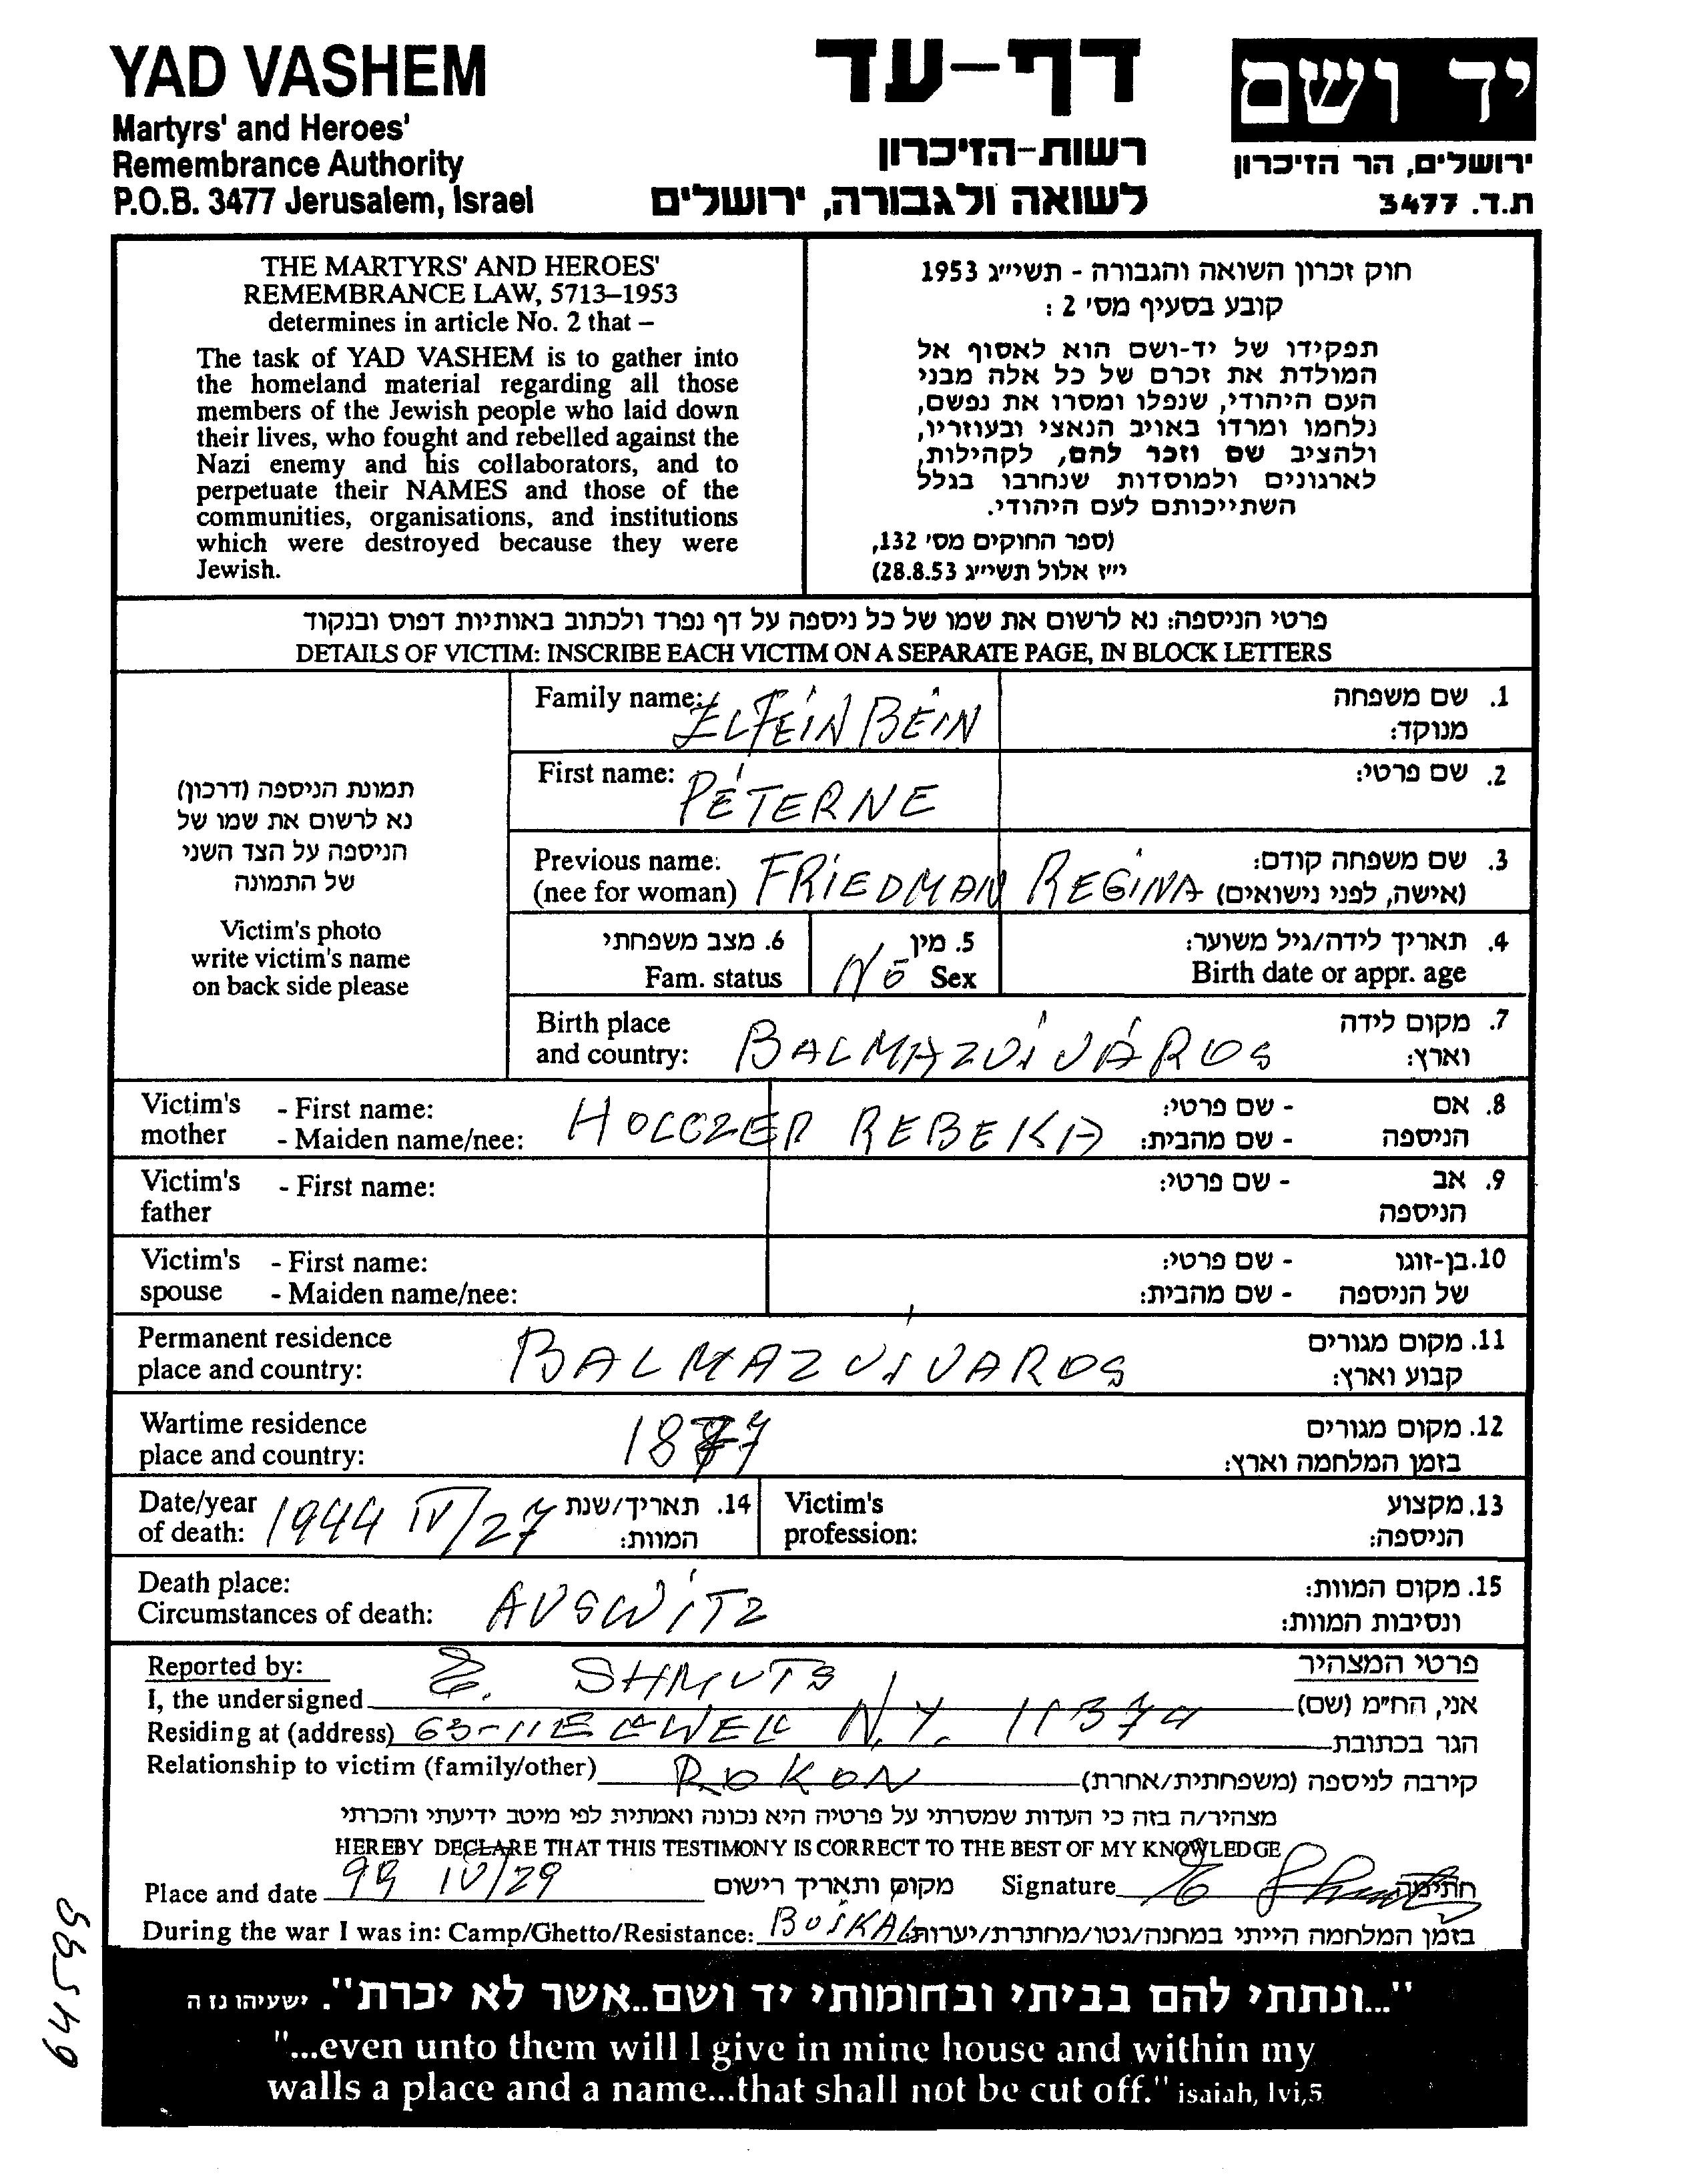 YAD VASHEM
Martyrs' and Heroes'
Remembrance Authority
P.O.B. 3477 Jerusalem, Israel
דף-עד
רשות-הזיכרון
לשואה ולגבורה, ירושלים
יד ושם
ירושלים, הר הזיכרון
ת.ד. 3477
THE MARTYRS' AND HEROES'
REMEMBRANCE LAW, 5713–1953
determines in article No. 2 that –
The task of YAD VASHEM is to gather into
the homeland material regarding all those
members of the Jewish people who laid down
their lives, who fought and rebelled against the
Nazi enemy and his collaborators, and to
perpetuate their NAMES and those of the
communities, organisations, and institutions
which were destroyed because they were
Jewish.
חוק זכרון השואה והגבורה - תשי"ג 1953
קובע בסעיף מס' 2 :
תפקידו של יד-ושם הוא לאסוף אל
המולדת את זכרם של כל אלה מבני
העם היהודי, שנפלו ומסרו את נפשם,
נלחמו ומרדו באויב הנאצי ובעוזריו,
ולהציב שם וזכר להם, לקהילות,
לארגונים ולמוסדות שנחרבו בגלל
השתייכותם לעם היהודי.
(ספר החוקים מס' 132,
י"ז אלול תשי"ג 28.8.53)
פרטי הניספה: נא לרשום את שמו של כל ניספה על דף נפרד ולכתוב באותיות דפוס ובנקוד
DETAILS OF VICTIM: INSCRIBE EACH VICTIM ON A SEPARATE PAGE, IN BLOCK LETTERS
תמונת הניספה (דרכון)
נא לרשום את שמו של
הניספה על הצד השני
של התמונה
Victim's photo
write victim's name
on back side please
Family name: ELFEINBEIN 1. שם משפחה
מנוקד:
First name: PÉTERNE 2. שם פרטי:
Previous name: FRIEDMAN REGINA 3. שם משפחה קודם:
(nee for woman) (אישה, לפני נישואים)
6. מצב משפחתי 5. מין 4. תאריך לידה/גיל משוער:
Fam. status NŐ Sex Birth date or appr. age
Birth place 7. מקום לידה
and country: BALMAZUJVÁROS וארץ:
Victim's - First name: - שם פרטי: 8. אם
mother - Maiden name/nee: HOLCZER REBEKA - שם מהבית: הניספה
Victim's - First name: - שם פרטי: 9. אב
father הניספה
Victim's - First name: - שם פרטי: 10. בן-זוגו
spouse - Maiden name/nee: - שם מהבית: של הניספה
Permanent residence 11. מקום מגורים
place and country: BALMAZUJVAROS קבוע וארץ:
Wartime residence 12. מקום מגורים
place and country: בזמן המלחמה וארץ:
Date/year 1944 IV/27 14. תאריך/שנת Victim's 13. מקצוע
of death: המוות: profession: הניספה:
Death place: 15. מקום המוות:
Circumstances of death: AUSWITZ ונסיבות המוות:
Reported by: פרטי המצהיר
I, the undersigned SHMUTS אני, הח"מ (שם)
Residing at (address) 63-11 N.Y. 11374 הגר בכתובת
Relationship to victim (family/other) ROKON קירבה לניספה (משפחתית/אחרת)
מצהיר/ה בזה כי העדות שמסרתי על פרטיה היא נכונה ואמתית לפי מיטב ידיעתי והכרתי
HEREBY DECLARE THAT THIS TESTIMONY IS CORRECT TO THE BEST OF MY KNOWLEDGE
Place and date 99 IV/29 מקום ותאריך רישום Signature חתימה
During the war I was in: Camp/Ghetto/Resistance: בזמן המלחמה הייתי במחנה/גטו/מחתרת/יערות:
"...ונתתי להם בביתי ובחומותי יד ושם..אשר לא יכרת". ישעיהו נו ה
"...even unto them will I give in mine house and within my
walls a place and a name...that shall not be cut off." isaiah, lvi,5